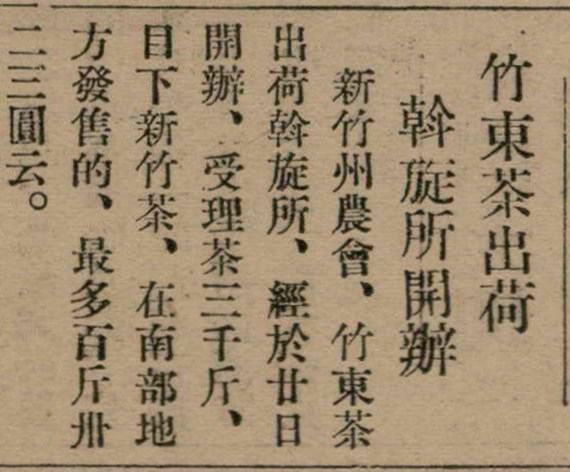 竹東茶出荷
斡旋所開辦
新竹州農會、竹東茶
出荷斡旋所、經於廿日
開辦、受理茶三千斤、
目下新竹茶、在南部地
方發售的、最多百斤卅
二三圓云。